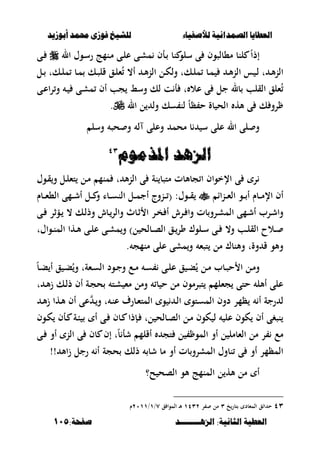 العطايا الصمدانية للأصفياء للشيخ فوزى محمد أبوزيد
إذاً كلنا مطالبون فى سلوكنا بأن نمشى على منهج رسول الله فى
الزهد، ليس الزهد فيما تملك، ولكن الزهد ألا تُعلق قلبك بما تملك، بل
تُعلق القلب بالله جل فى علاه، فأنت لك وسط يجب أن تمشى فيه وتراعى
ظروفك فى هذه الحياة حفظاً لنفسك ولدين الله.
وصلى الله على سيدنا محمد وعلى آله وصحبه وسلم
الزهد المذموم٤٣
نرى فى الإخوان اتجاهات متباينة فى الزهد، فمنهم من يتعلل ويقول
أن الإمام أبو العزائم يقول: (تزوج أجمل النساء وكل أشهى الطعام
واشرب أشهى المشروبات وافرش أفخر الأثاث والرياش وذلك لا يؤثر فى
صلاح القلب ولا فى سلوك طريق الصالحين) ويمشى على هذا المنوال،
وهو قدوة، وهناك من يتبعه ويمشى على منهجه.
ومن الأحباب من يُضيق على نفسه مع وجود السعة، ويُضيق أيضاً
على أهله حتى يجعلهم يتبرمون من حياته ومن معيشته بحجة أن ذلك زهد،
لدرجة أنه يظهر دون المستوى الدنيوى المتعارف عنه، ويدَّعى أن هذا زهد
ينبغى أن يكون عليه ليكون من الصالحين، فإذا كان فى أى بيئة كأن يكون
مع نفر من العاملين أو الموظفين فتجده أقلهم شأناً، إن كان فى الزى أو فى
المظهر أو فى تناول المشروبات أو ما شابه ذلك بحجة أنه رجل زاهد!!
أى من هذين المنهج هو الصحيح؟
٤٣ حدائق المعادى بتاريخ ٣ من صفر ١٤٣٢ هـ الموافق ٢٠١١/١/٧م
العطية الثانية: الزهــــــد صفحة:١٠٥